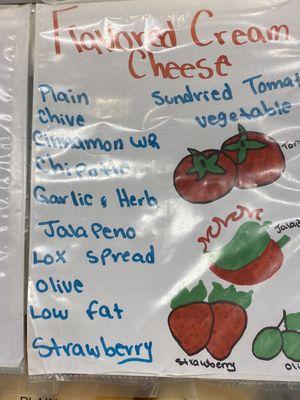 Flavored Cream
Cheese
Plain
Chive
Cinnamon WR
Chipotle
Garlic & Herb
Jalapeno
Lox spread
olive
Low fat
Strawberry
Sundried Tomat
vegetable
Tom
Jalap
Strawberry
oli
PLAIN